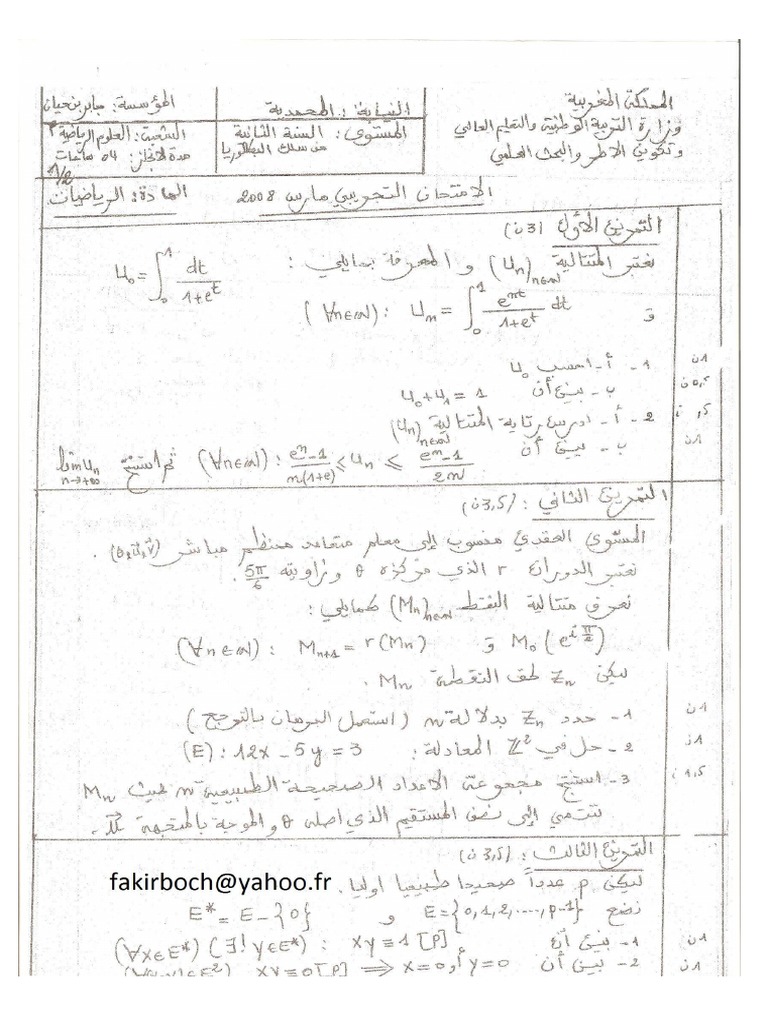 المملكة المغربية
وزارة التربية الوطنية والتعليم العالي
وتكوين الأطر والبحث العلمي
النيابة : المحمدية
المستوى : السنة الثانية
من سلك البكالوريا
المؤسسة : جابر بن حيان
الشعبة : العلوم الرياضية
مدة الانجاز : 04 ساعات
1/2
الامتحان التجريبي مارس 2008
المادة : الرياضيات
التمرين الأول (3ن)
نعتبر المتتالية (Un)n∈ℕ و المعرفة بمايلي : U₀ = ∫₀¹ dt/(1+e^t)
و (∀n∈ℕ) : Un = ∫₀¹ e^(nt)/(1+e^t) dt
1- أ- احسب U₀ 1ن
ب- بين أن U₀+U₁ = 1 0,5ن
2- أ- ادرس رتابة المتتالية (Un)n∈ℕ
ب- بين أن (∀n∈ℕ) : (e^n-1)/(n(1+e)) ≤ Un ≤ (e^n-1)/(2n) ثم استنتج lim Un n→+∞ 1ن
التمرين الثاني : (3,5ن)
المستوى العقدي منسوب إلى معلم متعامد منظم مباشر (0,u⃗,v⃗) .
نعتبر الدوران r الذي مركزه θ وزاويته 5π/6 .
نعرف متتالية النقط (Mn)n∈ℕ كمايلي :
M₀(e^(iπ/2)) و (∀n∈ℕ) : Mn+1 = r(Mn)
ليكن Zn لحق النقطة Mn .
1- حدد Zn بدلالة n (استعمل البرهان بالترجع) . 1ن
2- حل في ℤ² المعادلة : (E) : 12x - 5y = 3 1ن
3- استنتج مجموعة الاعداد الصحيحة الطبيعية n حيث Mn 1,5ن
تنتمي إلى نصف المستقيم الذي اصله θ والموجه بالمتجهة u⃗ .
التمرين الثالث : (3,5ن)
fakirboch@yahoo.fr
ليكن p عدداً صحيحا طبيعيا اوليا .
نضع E = {0,1,2,....,p-1} و E* = E-{0}
1- بين أن (∀x∈E*) (∃!y∈E*) : xy ≡ 1 [p] 1ن
2- بين أن xy ≡ 0 [p] ⟹ x=0 أو y=0 1ن